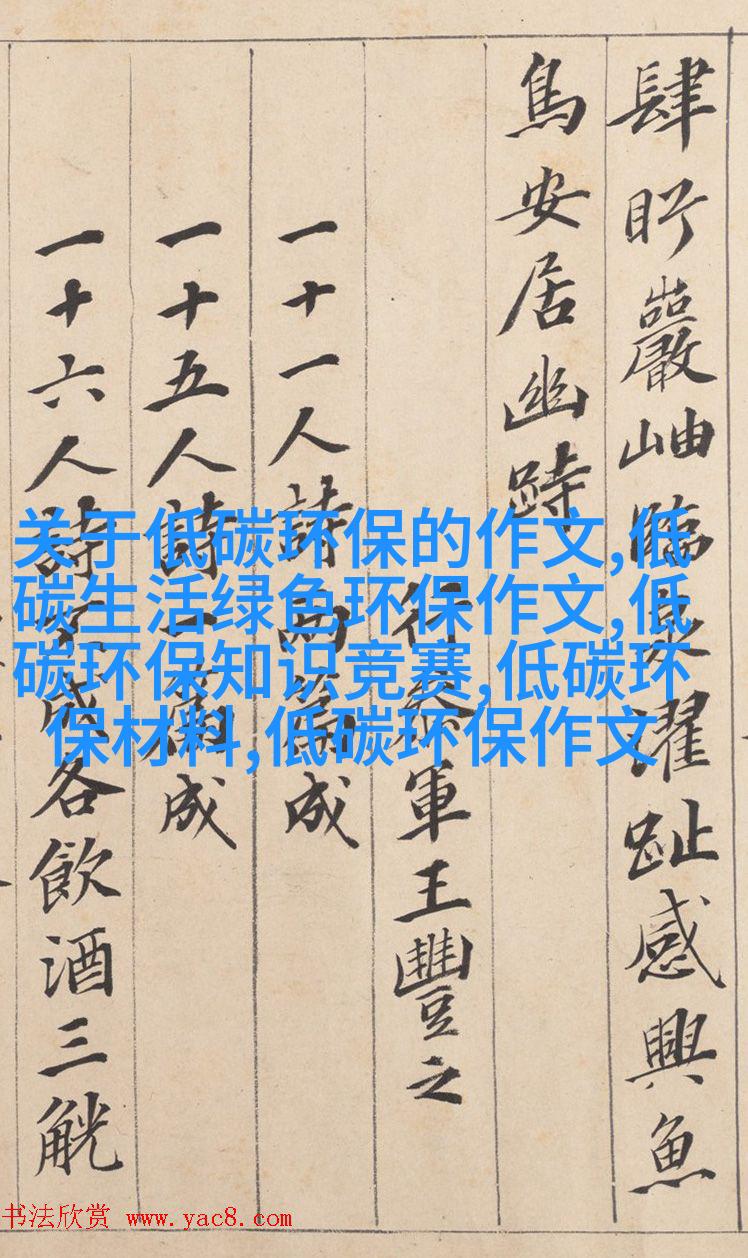 肆巖岫臨泉濯趾感興魚
鳥安居幽跱
行參軍王豐之
一十一人詩兩篇成
一十五人詩一篇成
一十六人詩不成各飲酒三觥
关于低碳环保的作文,低
碳生活绿色环保作文,低
碳环保知识竞赛,低碳环
保材料,低碳环保作文
书法欣赏 www.yac8.com